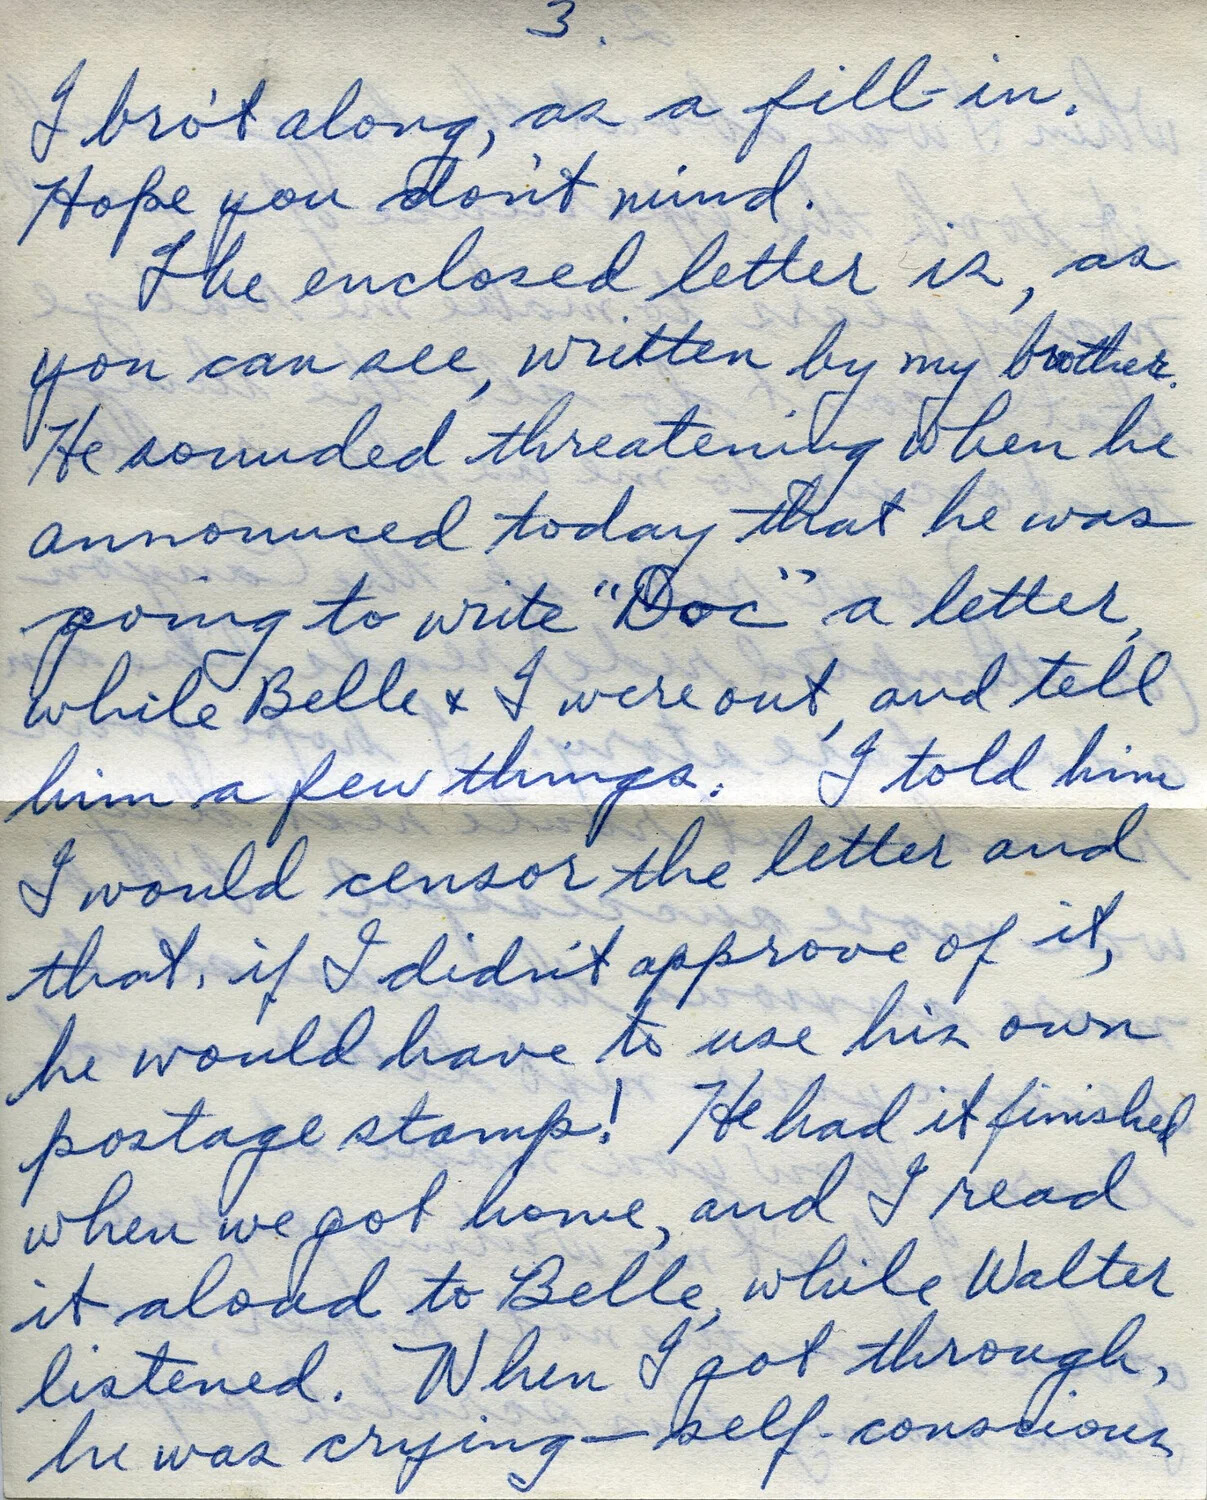 3.
I bro't along, as a fill-in.
Hope you don't mind.
The enclosed letter is, as
you can see, written by my brother.
He sounded threatening when he
announced today that he was
going to write "Doc" a letter,
while Belle & I were out, and tell
him a few things. I told him
I would censor the letter and
that, if I didn't approve of it,
he would have to use his own
postage stamp! He had it finished
when we got home, and I read
it aloud to Belle, while Walter
listened. When I got through,
he was crying — self-conscious